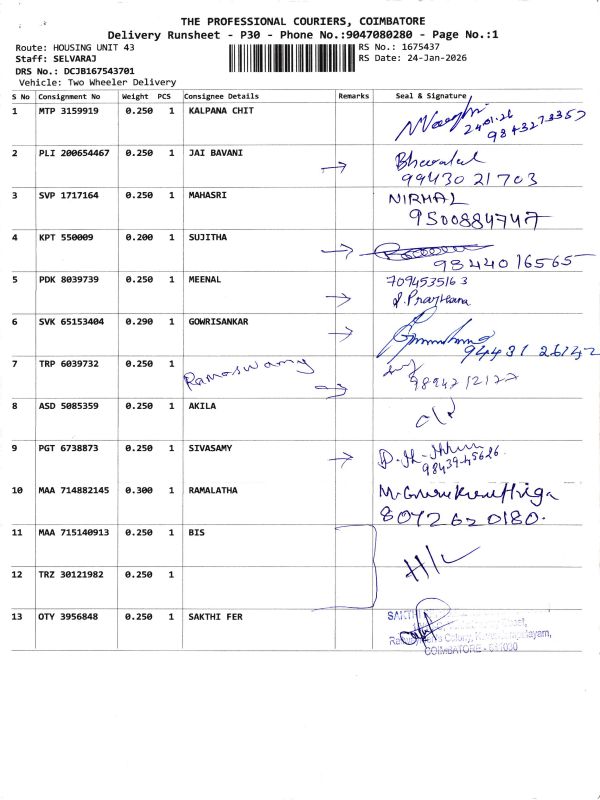 THE PROFESSIONAL COURIERS, COIMBATORE
Delivery Runsheet - P30 - Phone No.:9047080280 - Page No.:1
Route: HOUSING UNIT 43
RS No.: 1675437
Staff: SELVARAJ
RS Date: 24-Jan-2026
DRS No.: DCJB167543701
Vehicle: Two Wheeler Delivery
S No Consignment No Weight PCS Consignee Details Remarks Seal & Signature
1 MTP 3159919 0.250 1 KALPANA CHIT
24.01.26
9843273357
2 PLI 200654467 0.250 1 JAI BAVANI
→ Bharalal
99430 21703
3 SVP 1717164 0.250 1 MAHASRI NIRMAL
9500884747
4 KPT 550009 0.200 1 SUJITHA
→ 9844016565
5 PDK 8039739 0.250 1 MEENAL 7094535163
→
6 SVK 65153404 0.290 1 GOWRISANKAR
→ 94431 26142
7 TRP 6039732 0.250 1 Ramaswamy
→
8 ASD 5085359 0.250 1 AKILA
9 PGT 6738873 0.250 1 SIVASAMY
→ 98439-45626.
10 MAA 714882145 0.300 1 RAMALATHA
8072620180.
11 MAA 715140913 0.250 1 BIS
H/L
12 TRZ 30121982 0.250 1
13 OTY 3956848 0.250 1 SAKTHI FER SAKTHI
COIMBATORE -